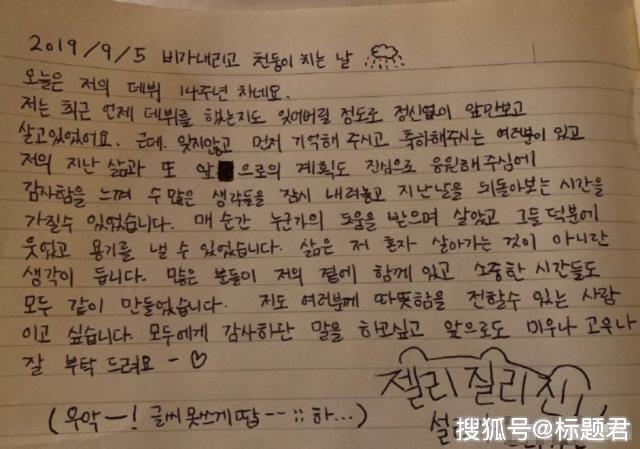 2019/9/5 비가내리고 천둥이 치는 날
오늘은 저의 데뷔 14주년 차네요.
저는 최근 언제 데뷔를 했는지도 잊어버릴 정도로 정신없이 앞만보고
살고있었어요. 근데. 잊지않고 먼저 기억해 주시고 축하해주시는 여러분이 있고
저의 지난 삶과 또 앞으로의 계획도 진심으로 응원해주심에
감사함을 느껴 수많은 생각들을 잠시 내려놓고 지난날을 뒤돌아보는 시간을
가질수 있었습니다. 매 순간 누군가의 도움을 받으며 살았고 그들 덕분에
웃었고 용기를 낼 수 있었습니다. 삶은 저 혼자 살아가는 것이 아니란
생각이 듭니다. 많은 분들이 저의 곁에 함께 있고 소중한 시간들도
모두 같이 만들었습니다. 저도 여러분께 따뜻함을 전할수 있는 사람
이고 싶습니다. 모두에게 감사하단 말을 하고싶고 앞으로도 미우나 고우나
잘 부탁 드려요 - ♡
젤리 질리 진
(우악ㅡ! 글씨 못쓰게땁--;; 하...)
설리
搜狐号@标题君